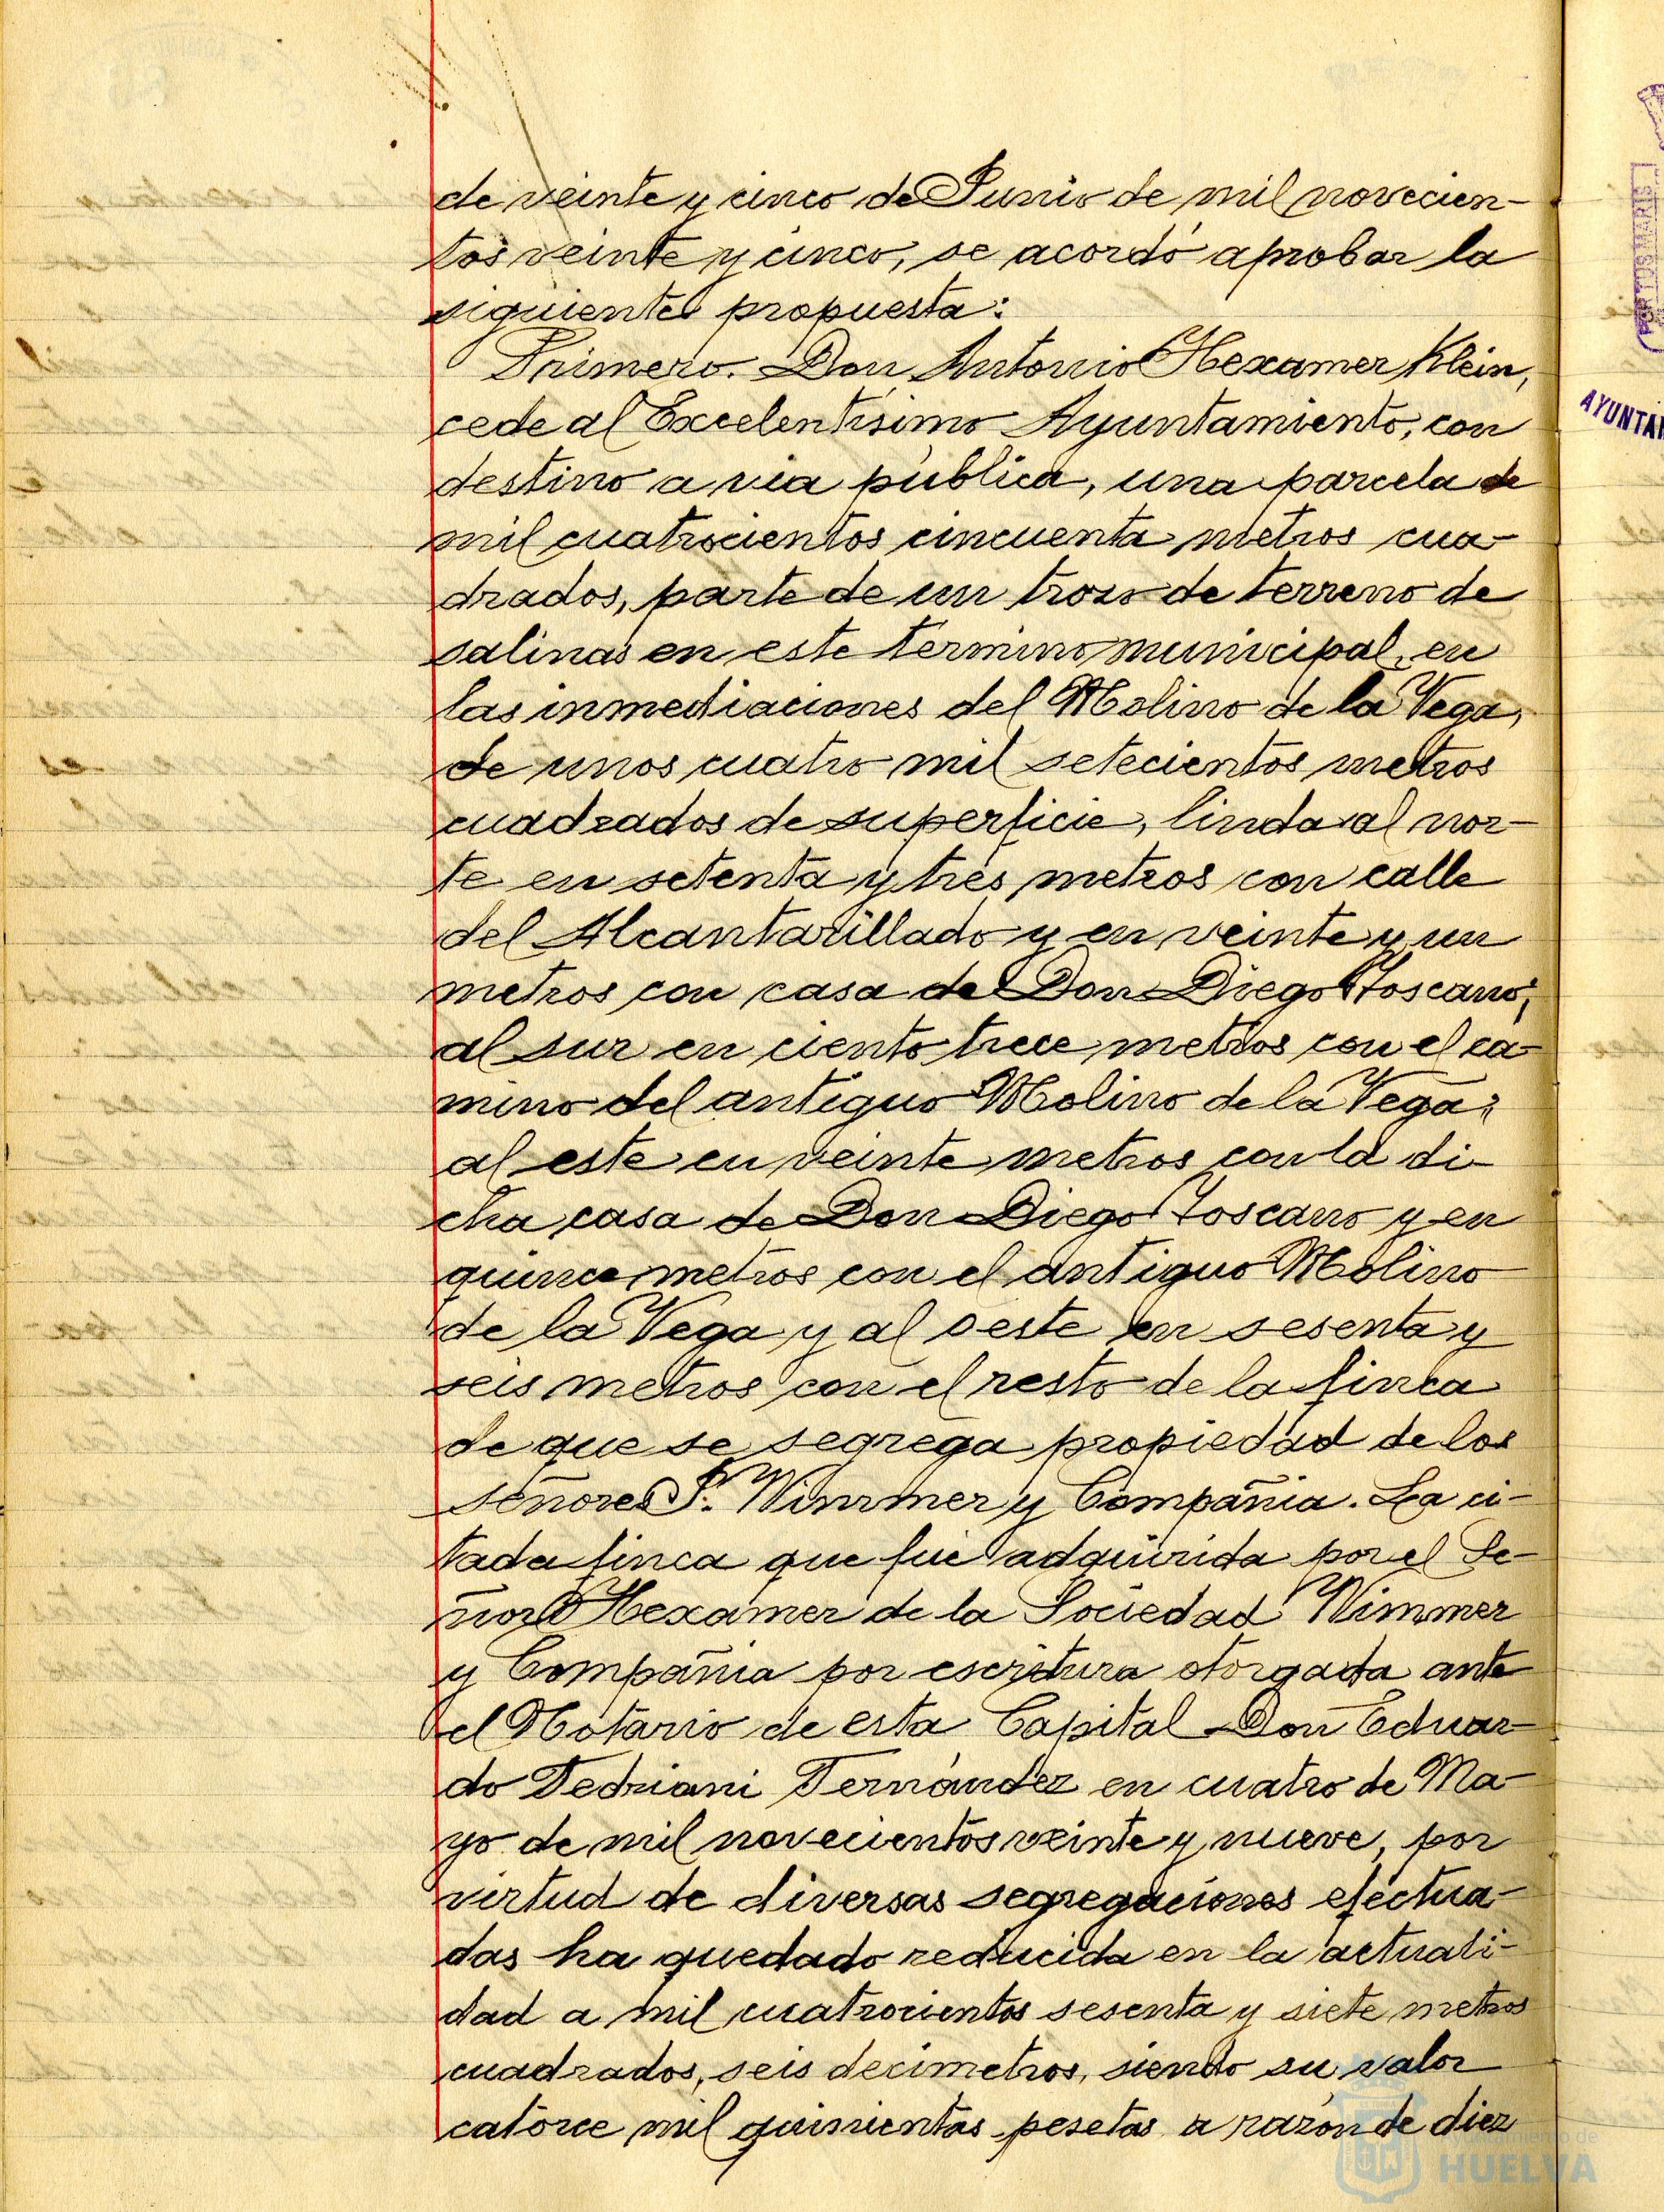 de veinte y cinco de Junio de mil novecien-
tos veinte y cinco, se acordó aprobar la
siguiente propuesta:
Primero. Don Antonio Hexamer Klein,
cede al Excelentísimo Ayuntamiento, con
destino a via pública, una parcela de
mil cuatrocientos cincuenta metros cua-
drados, parte de un trozo de terreno de
salinas en este término municipal, en
las inmediaciones del Molino de la Vega,
de unos cuatro mil setecientos metros
cuadrados de superficie, linda al nor-
te en setenta y tres metros con calle
del Alcantarillado y en veinte y un
metros con casa de Don Diego Toscano;
al sur en ciento trece metros con el ca-
mino del antiguo Molino de la Vega;
al este en veinte metros con la di-
cha casa de Don Diego Toscano y en
quince metros con el antiguo Molino
de la Vega y al oeste en sesenta y
seis metros con el resto de la finca
de que se segrega propiedad de los
señores J. Wimmer y Compañia. La ci-
tada finca que fué adquirida por el Se-
ñor Hexamer de la Sociedad Wimmer
y Compañia por escritura otorgada ante
el Notario de esta Capital Don Eduar-
do Fedriani Fernández en cuatro de Ma-
yo de mil novecientos veinte y nueve, por
virtud de diversas segregaciones efectua-
das ha quedado reducida en la actuali-
dad a mil cuatrocientos sesenta y siete metros
cuadrados, seis decimetros, siendo su valor
catorce mil quinientas pesetas a razón de diez
PORTUS MARIS
AYUNTAM
Ayuntamiento de
HUELVA